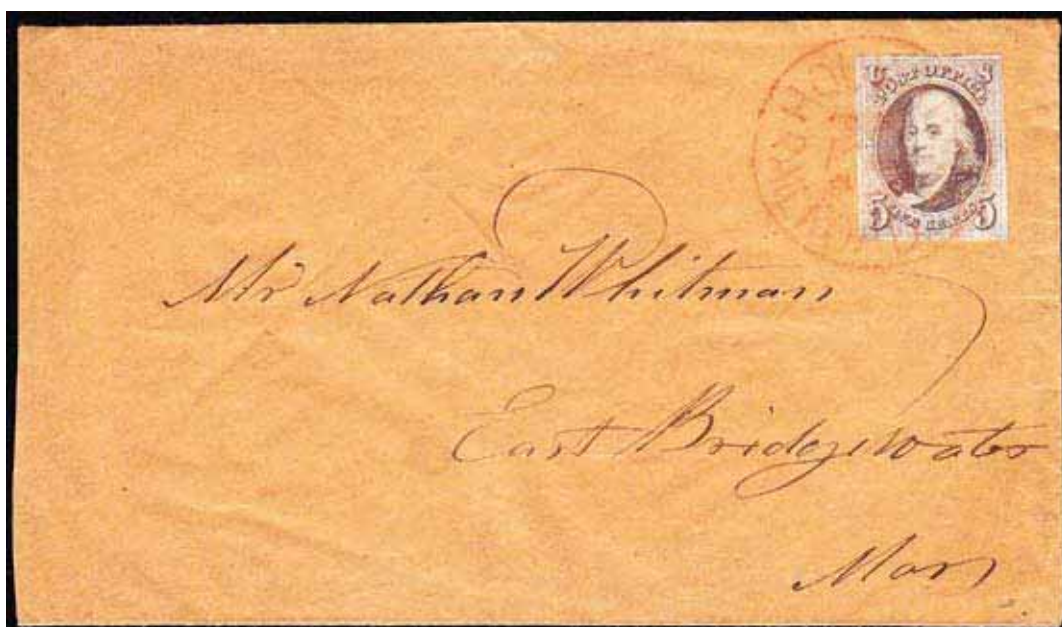 U S
POST OFFICE
5 FIVE CENTS 5
Mr Nathan Whitman
East Bridgewater
Mass